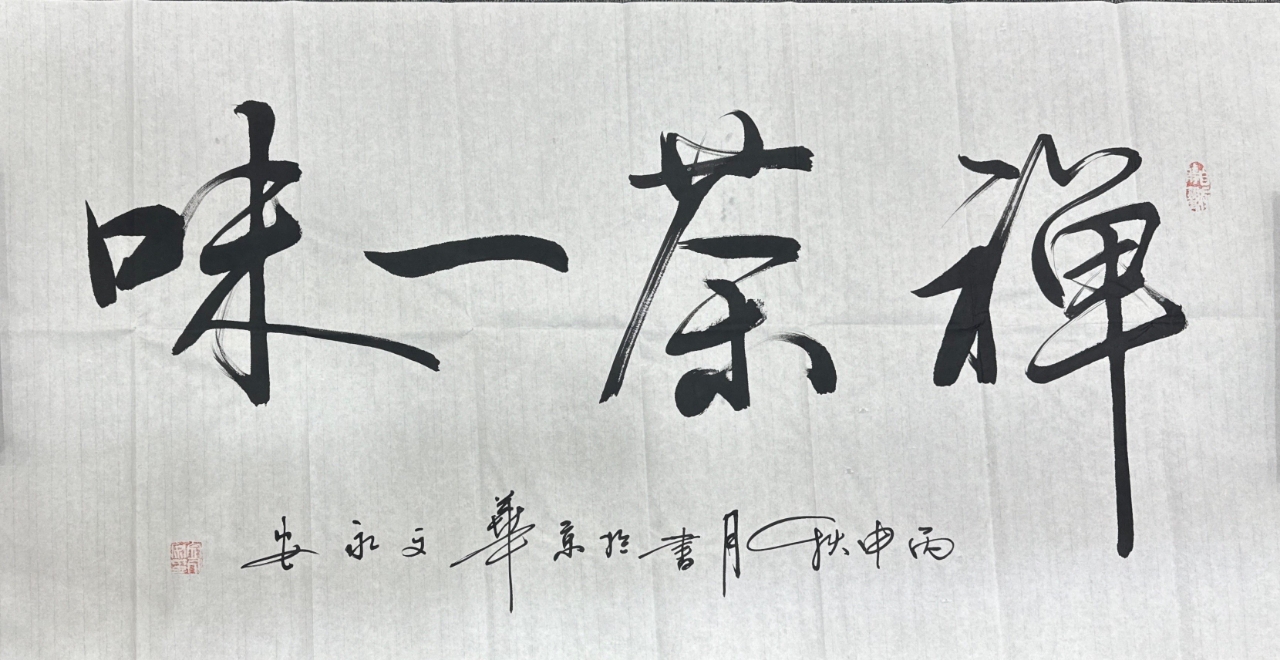 禅茶一味
丙申秋月書於京華文永安